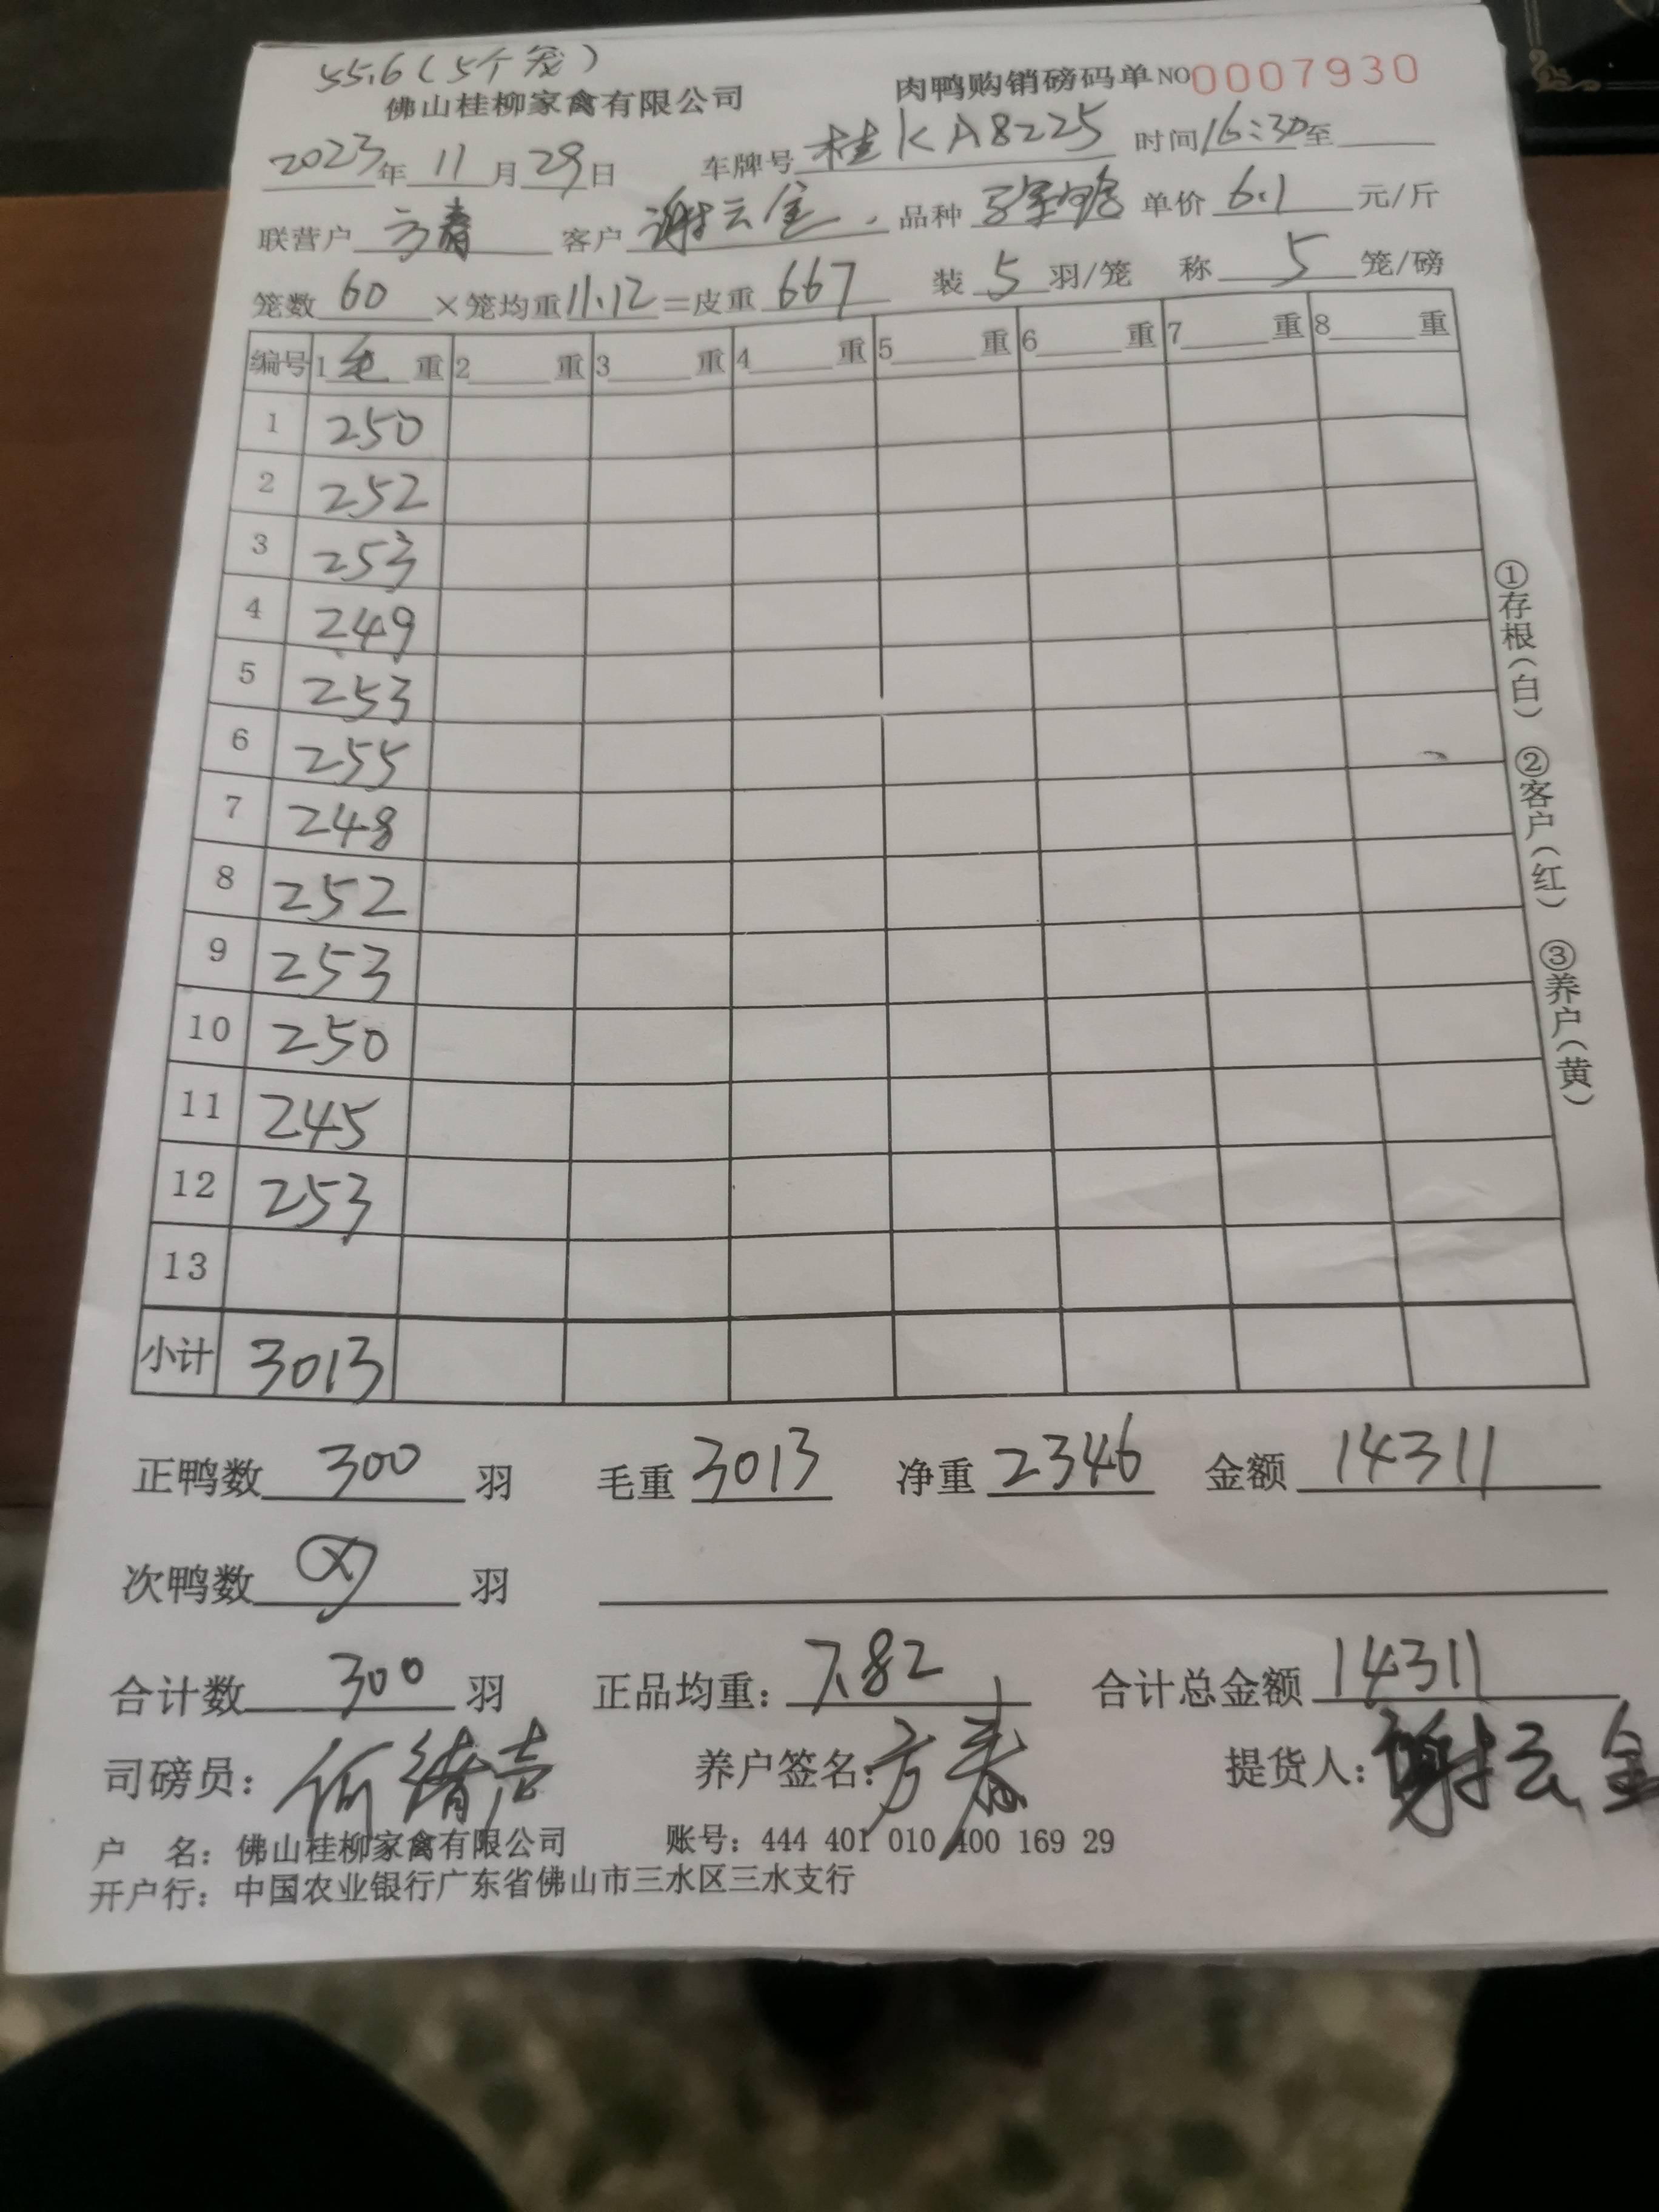 55.6(5个笼)
佛山桂柳家禽有限公司 肉鸭购销磅码单 NO 0007930
2023年11月29日 车牌号 桂KA8225 时间 16:30至
联营户 方春 客户 谢云金 品种 单价 6.1 元/斤
笼数 60 ×笼均重 11.12 =皮重 667 装 5 羽/笼 称 5 笼/磅
编号 1 毛 重 2 重 3 重 4 重 5 重 6 重 7 重 8 重
1 250
2 252
3 253
4 249
5 253
6 255
7 248
8 252
9 253
10 250
11 245
12 253
13
小计 3013
①存根(白) ②客户(红) ③养户(黄)
正鸭数 300 羽 毛重 3013 净重 2346 金额 14311
次鸭数 羽
合计数 300 羽 正品均重: 7.82 合计总金额 14311
司磅员: 何 养户签名: 方春 提货人: 谢云金
户 名: 佛山桂柳家禽有限公司 账号: 444 401 010 400 169 29
开户行: 中国农业银行广东省佛山市三水区三水支行